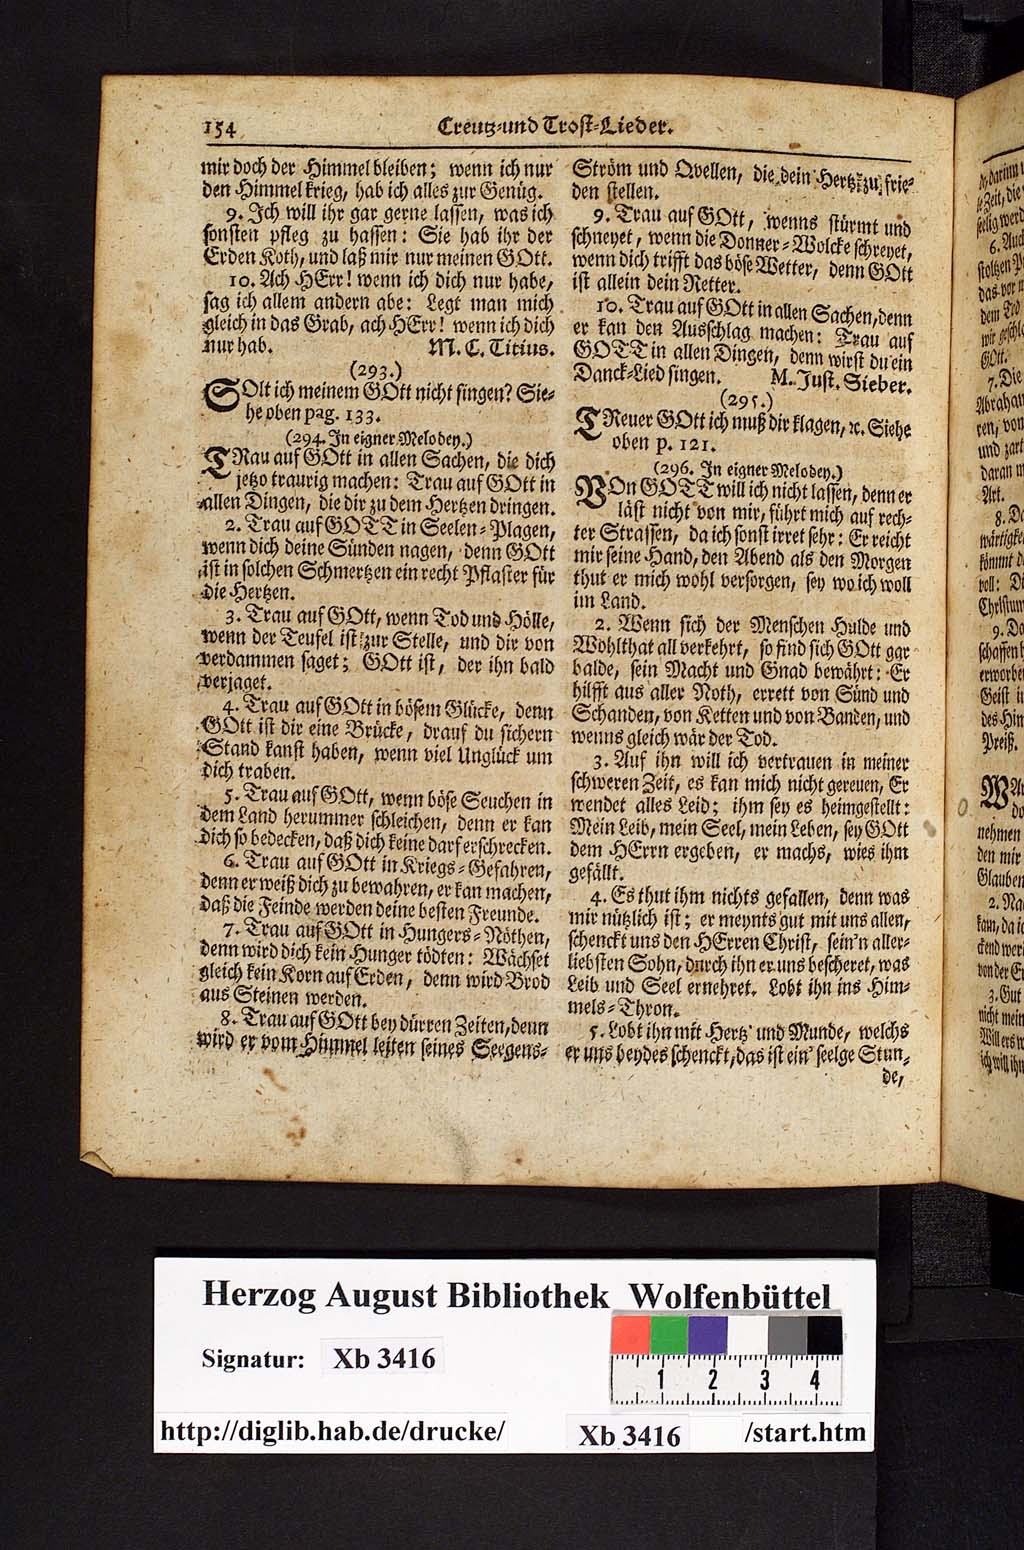 154
Creutz-und Trost-Lieder.
mir doch der Himmel bleiben; wenn ich nur
den Himmel krieg, hab ich alles zur Genüg.
9. Ich will ihr gar gerne lassen, was ich
sonsten pfleg zu hassen: Sie hab ihr der
Erden Koth, und laß mir nur meinen GOtt.
10. Ach HErr! wenn ich dich nur habe,
sag ich allem andern abe: Legt man mich
gleich in das Grab, ach HErr! wenn ich dich
nur hab. M. C. Titius.
(293.)
SOlt ich meinem GOtt nicht singen? Sie-
he oben pag. 133.
(294. In eigner Melodey.)
TRau auf GOtt in allen Sachen, die dich
jetzo traurig machen: Trau auf GOtt in
allen Dingen, die dir zu dem Hertzen dringen.
2. Trau auf GOTT in Seelen-Plagen,
wenn dich deine Sünden nagen, denn GOtt
ist in solchen Schmertzen ein recht Pflaster für
die Hertzen.
3. Trau auf GOtt, wenn Tod und Hölle,
wenn der Teufel ist zur Stelle, und dir von
verdammen saget; GOtt ist, der ihn bald
verjaget.
4. Trau auf GOtt in bösem Glücke, denn
GOtt ist dir eine Brücke, drauf du sichern
Stand kanst haben, wenn viel Unglück um
dich traben.
5. Trau auf GOtt, wenn böse Seuchen in
dem Land herummer schleichen, denn er kan
dich so bedecken, daß dich keine darf erschrecken.
6. Trau auf GOtt in Kriegs-Gefahren,
denn er weiß dich zu bewahren, er kan machen,
daß die Feinde werden deine besten Freunde.
7. Trau auf GOtt in Hungers-Nöthen,
denn wird dich kein Hunger tödten: Wächset
gleich kein Korn auf Erden, denn wird Brod
aus Steinen werden.
8. Trau auf GOtt bey dürren Zeiten, denn
wird er vom Himmel leiten seines Seegens-
Ström und Qvellen, die dein Hertz zu frie-
den stellen.
9. Trau auf GOtt, wenns stürmt und
schneyet, wenn die Donner-Wolcke schreyet,
wenn dich trifft das böse Wetter, denn GOtt
ist allein dein Retter.
10. Trau auf GOtt in allen Sachen, denn
er kan den Ausschlag machen: Trau auf
GOTT in allen Dingen, denn wirst du ein
Danck-Lied singen. M. Just. Sieber.
(295.)
TReuer GOtt ich muß dir klagen, ꝛc. Siehe
oben p. 121.
(296. In eigner Melodey.)
VOn GOTT will ich nicht lassen, denn er
läst nicht von mir, führt mich auf rech-
ter Strassen, da ich sonst irret sehr: Er reicht
mir seine Hand, den Abend als den Morgen
thut er mich wohl versorgen, sey wo ich woll
im Land.
2. Wenn sich der Menschen Hulde und
Wohlthat all verkehrt, so find sich GOtt gar
balde, sein Macht und Gnad bewährt: Er
hilfft aus aller Noth, errett von Sünd und
Schanden, von Ketten und von Banden, und
wenns gleich wär der Tod.
3. Auf ihn will ich vertrauen in meiner
schweren Zeit, es kan mich nicht gereuen, Er
wendet alles Leid; ihm sey es heimgestellt:
Mein Leib, mein Seel, mein Leben, sey GOtt
dem HErrn ergeben, er machs, wies ihm
gefällt.
4. Es thut ihm nichts gefallen, denn was
mir nützlich ist; er meynts gut mit uns allen,
schenckt uns den HErren Christ, sein'n aller-
liebsten Sohn, durch ihn er uns bescheret, was
Leib und Seel ernehret. Lobt ihn ins Him-
mels-Thron.
5. Lobt ihn mit Hertz und Munde, welchs
er uns beydes schenckt, das ist ein' seelge Stun-
de,
6. Auch
stoltzen
das vor
GOtt.
7. Die
Abraham
ren, von
und zart
daran
Art.
8. Da
kömmt
voll: Di
Christum
9. Da
schaffen
erworben
Geist
des Him
Preiß.
nehmen
den mir
Glauben
2. Nach
kan, da
von der
3. Gut
nicht mein
Will ers
ich will ihn
Herzog August Bibliothek Wolfenbüttel
Signatur: Xb 3416
1 2 3 4
http://diglib.hab.de/drucke/ Xb 3416 /start.htm